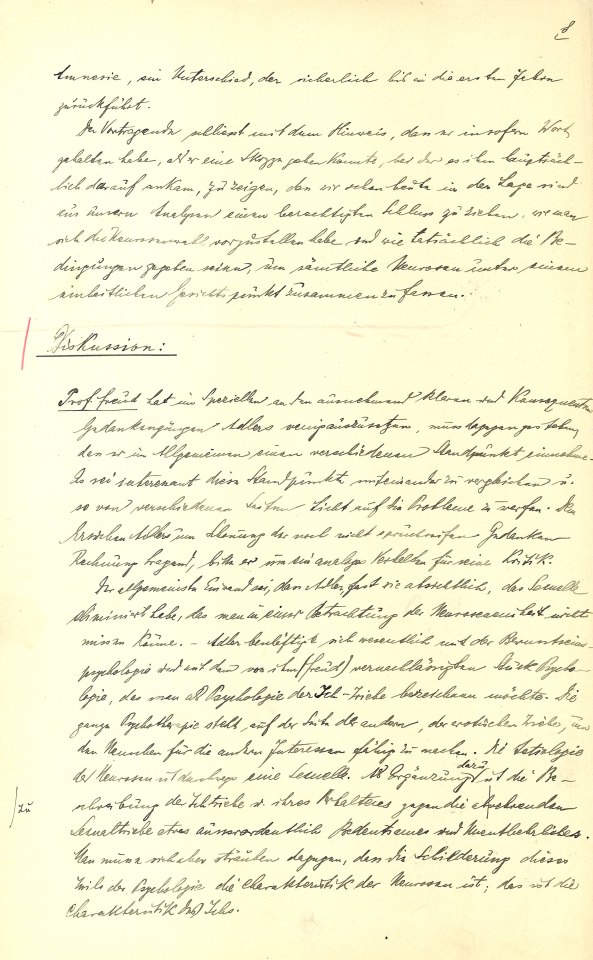 8
Amnesie, ein Unterschied, der sicherlich bis in die ersten Jahre
zurückführt.
Der Vortragende schliesst mit dem Hinweis, dass er insofern Wort
gehalten habe, als er eine Skizze geben konnte, bei der es ihm hauptsäch-
lich darauf ankam, zu zeigen, dass wir schon heute in der Lage sind
aus unsern Analysen einen berechtigten Schluss zu ziehen, wie man
sich die Neurosenwahl vorzustellen habe und wie tatsächlich die Be-
dingungen gegeben seien, um sämtliche Neurosen unter einem
einheitlichen Gesichtspunkt zusammenzufassen.
Diskussion:
Prof. Freud hat im Speziellen an den ausnehmend klaren und Konsequenten
Gedankengängen Adlers wenig auszusetzen, muss dagegen gestehen,
dass er im Allgemeinen einen verschiedenen Standpunkt einnehme.
Es sei interessant diese Standpunkte miteinander zu vergleichen u.
so von verschiedenen Seiten Licht auf die Probleme zu werfen. Dem
Ersuchen Adlers um Schonung der noch nicht spruchreifen Gedanken
Rechnung tragend, bitte er um ein analoges Verhalten für seine Kritik.
Der allgemeinste Einwand sei, dass Adler, fast wie absichtlich, das Sexuelle
eliminiert habe, das man in einer Betrachtung der Neurosen nicht
missen könne. - Adler beschäftigt sich wesentlich mit der Bewusstseins-
psychologie und mit dem von ihm (Freud) vernachlässigten Stück Psycho-
logie, das man als Psychologie der Ich-Triebe bezeichnen möchte. Die
ganze Psychotherapie steht auf der Seite der andern, der erotischen Triebe, um
den Menschen für die anderen Interessen fähig zu machen. Die Aetiologie
der Neurosen ist durchwegs eine Sexuelle. Als Ergänzung dazu ist die Be-
schreibung der Ichtriebe u. ihres Verhaltens gegen die abzuwehrenden
Sexualtriebe etwas ausserordentlich Bedeutsames und Unentbehrliches.
Man muss sich aber sträuben dagegen, dass die Schilderung dieses
Teils der Psychologie die Charakteristik der Neurosen ist; das ist die
Charakteristik des Ichs.